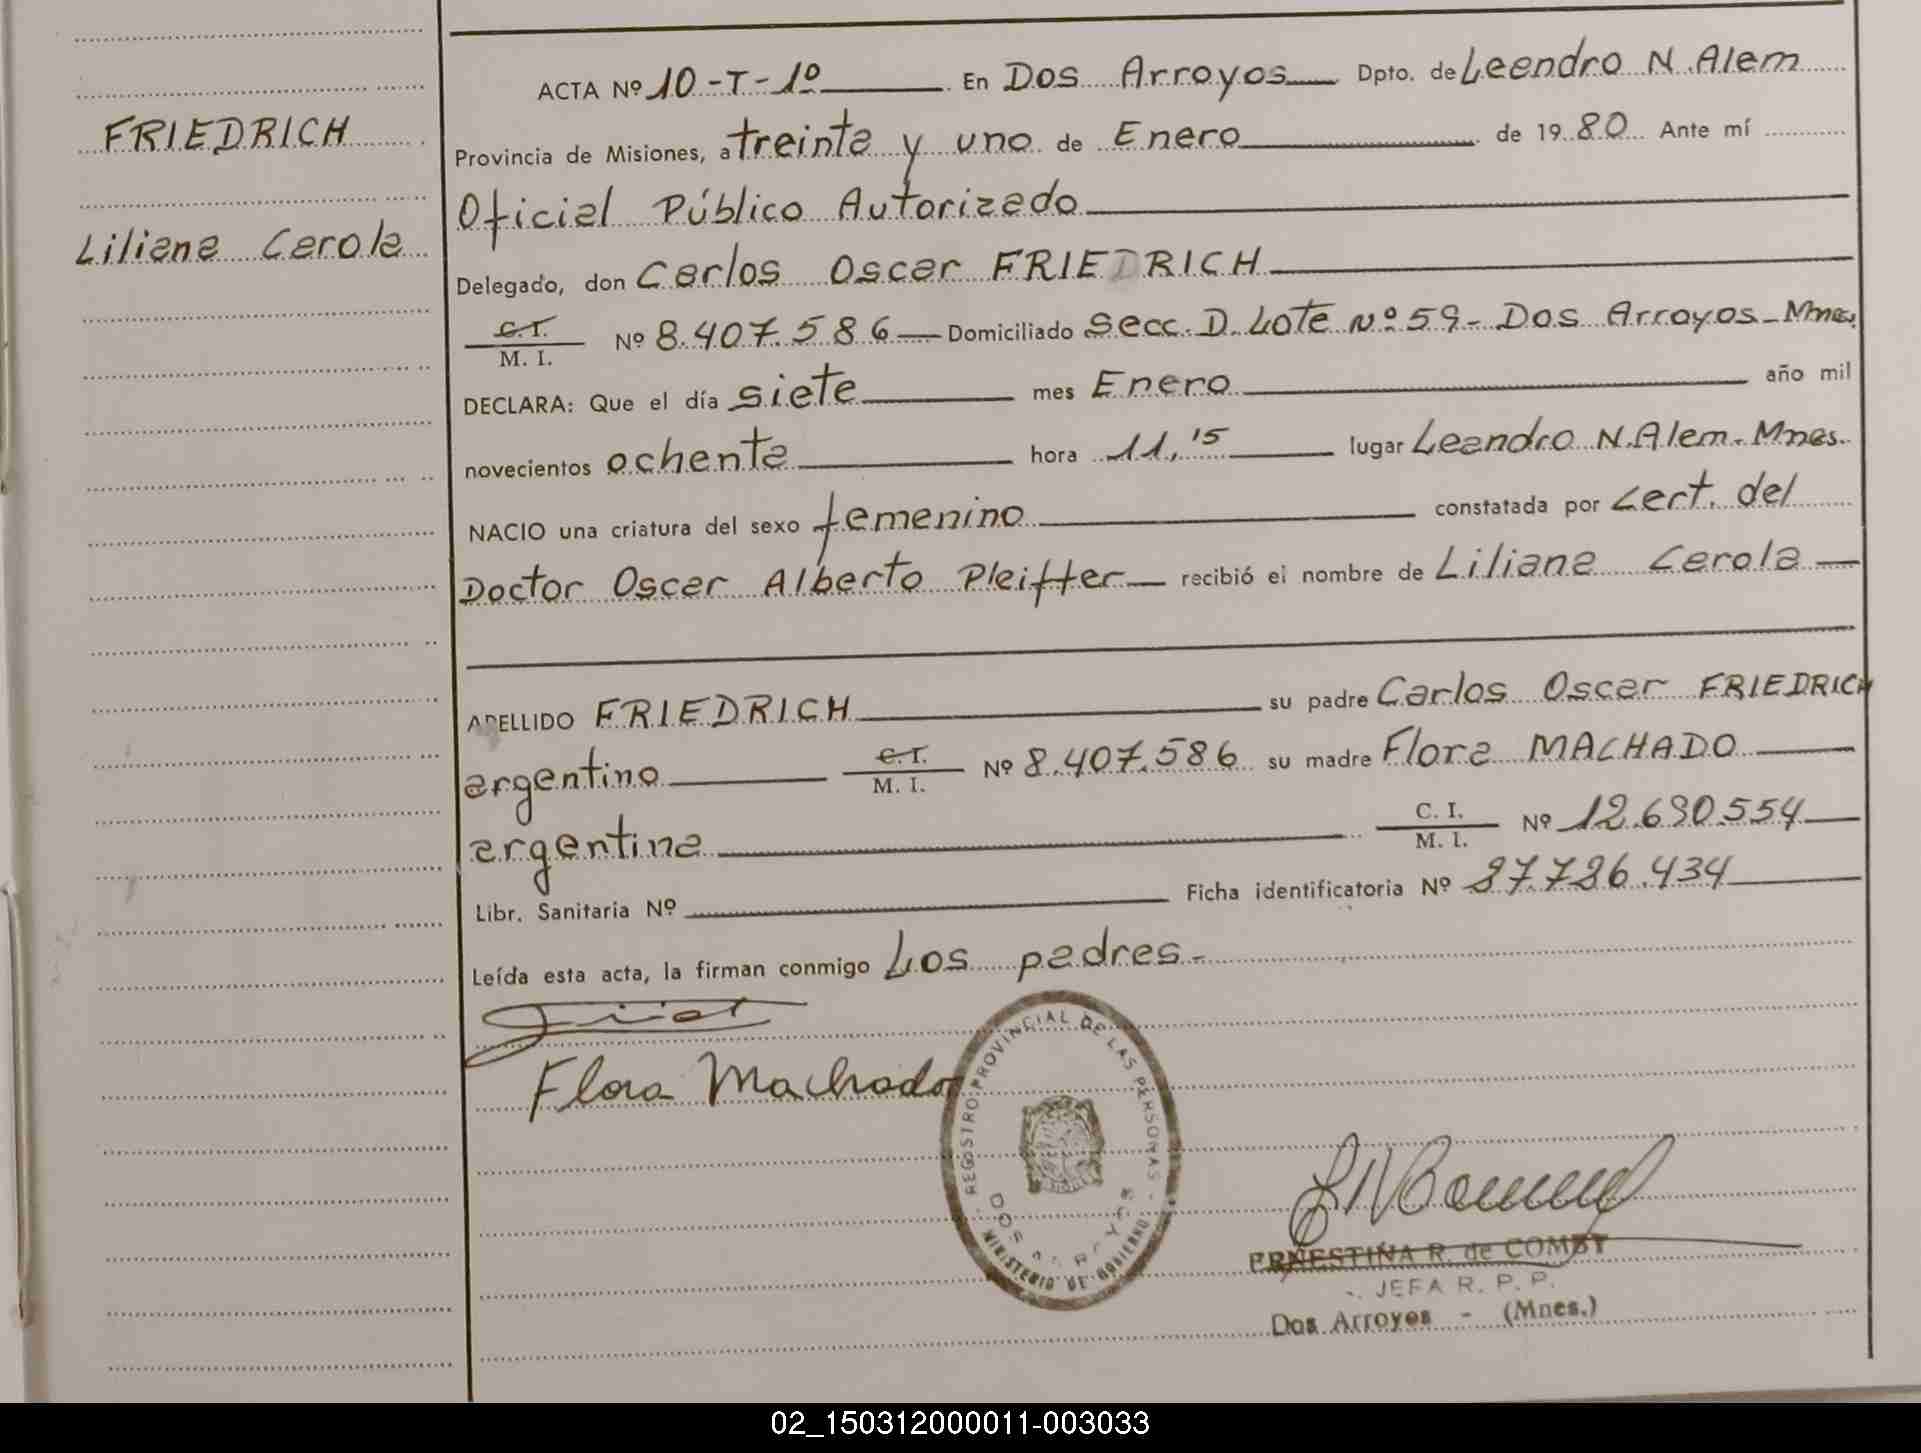 FRIEDRICH
Liliana Carola
ACTA Nº 10-T-1º En Dos Arroyos Dpto. de Leandro N. Alem
Provincia de Misiones, a treinta y uno de Enero de 1980 Ante mí
Oficial Público Autorizado
Delegado, don Carlos Oscar FRIEDRICH
C.I. M. I. Nº 8.407.586 Domiciliado Secc. D. Lote Nº 59- Dos Arroyos - Mnes.
DECLARA: Que el día siete mes Enero año mil
novecientos ochenta hora 11,15 lugar Leandro N. Alem - Mnes.
NACIO una criatura del sexo femenino constatada por Cert. del
Doctor Oscar Alberto Pleiffer recibió el nombre de Liliana Carola
APELLIDO FRIEDRICH su padre Carlos Oscar FRIEDRICH
argentino C.I. M. I. Nº 8.407.586 su madre Flora MACHADO
argentina C. I. M. I. Nº 12.690.554
Libr. Sanitaria Nº Ficha identificatoria Nº 27.726.434
Leída esta acta, la firman conmigo Los padres.-
Flora Machado
REGISTRO PROVINCIAL DE LAS PERSONAS -
DOS ARROYOS
MINISTERIO DE GOBIERNO
ERNESTINA R. de COMBY
JEFA R. P. P.
Dos Arroyos - (Mnes.)
02_150312000011-003033